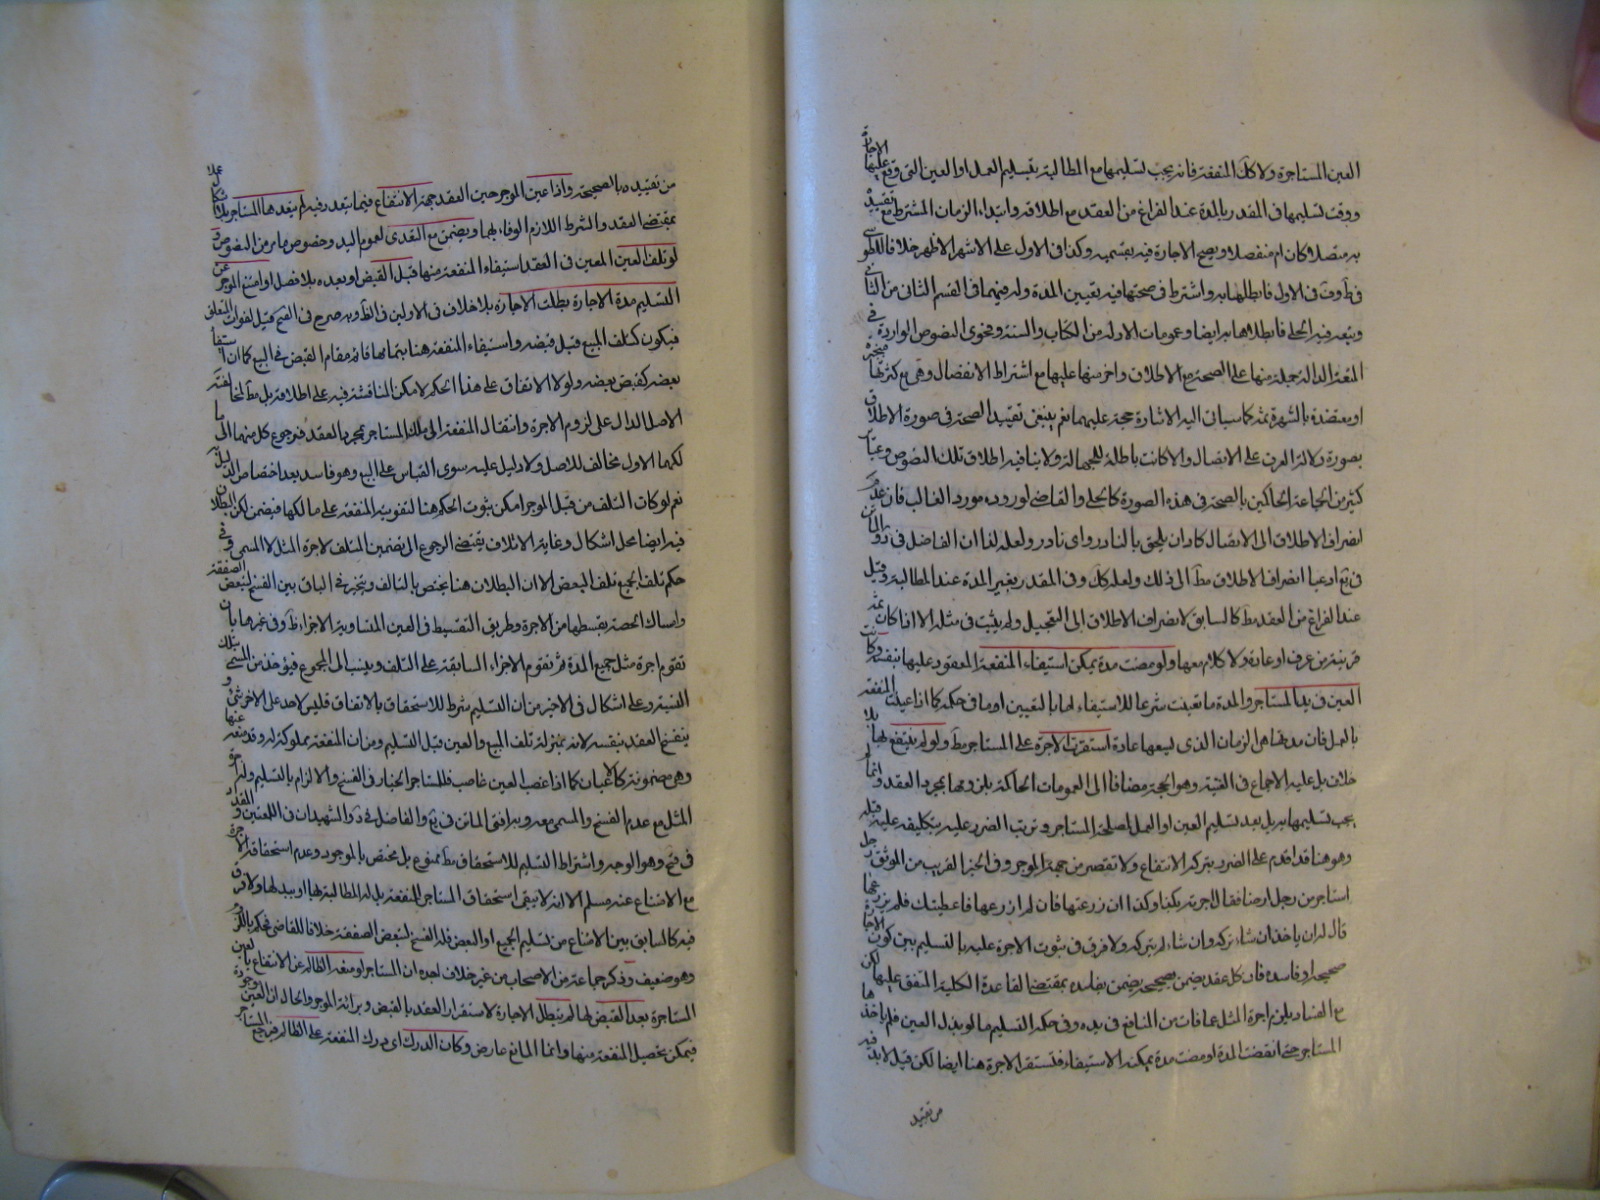 العين المستاجرة ولا كك المنفعة فانه يجب تسليمها مع المطالبة بتسليم العمل او العين التي وقع عليها الاجارة
ووقت تسليمها في المقدر بالمدة عند الفراغ من العقد مع اطلاقه وابتداء الزمان المشترط مع تقييده
به متصلا كان ام منفصلا ويصح الاجارة فيه بقسميه وكذا في الاول على الاشهر الاظهر خلافا للطوسي
في ف في الاول فابطلها به واشترط في صحتها فيه تعيين المدة وله فيهما في القسم الثاني من الثاني
وتبعه فيه الحلبي فابطلاها به ايضا وعمومات الادلة من الكتاب والسنة وفحوى النصوص الواردة في
المتعة الدالة جملة منها على الصحة مع الاطلاق واخر منها عليها مع اشتراط الانفصال وهي مع كثرتها منجبرة
او معتضدة بالشهرة كما سياتي اليه الاشارة حجة عليهما نعم ينبغي تقييد الصحة في صورة الاطلاق
بصورة دلالة العرف على الاتصال والا كانت باطلة للجهالة ولا ينافيه اطلاق تلك النصوص وعبائر
كثير من الجماعة الحاكمين بالصحة في هذه الصورة كالحلي والقاضي لوروده مورد الغالب فان عدم
انصراف الاطلاق الى الاتصال كاد ان يلحق بالنادر واي نادر ولعله لذا ان الفاضل في والماتن
في يع ادعيا انصراف الاطلاق مط الى ذلك ولعله كك وفي المقدر بغير المدة عند المطالبة وقيل
عند الفراغ من العقد مط كالسابق لانصراف الاطلاق الى التعجيل ولم يثبت في مثله الا اذا كان ثمة
قرينة من عرف او عادة ولا كلام معها ولو مضت مدة يمكن استيفاء المنفعة المعقود عليها بنفسه وكانت
العين في يد المستاجر والمدة ما تعينت شرعا للاستيفاء لها بالتعيين او ما في حكمه كما اذا عينت المنفعة
بالعمل فان مدتها هي الزمان الذي يسعها عادة استقرت الاجرة على المستاجر مط ولو لم ينتفع بها بلا
خلاف بل عليه الاجماع في الغنية وهو الحجة مضافا الى العمومات الحاكمة بلزومها بمجرد العقد وانما لم
يجب تسليمها به بل بعد تسليم العين او العمل لمصلحة المستاجر وترتب الضرر عليه بتكليفه عليه قبله
وهو هنا قد اقدم على الضرر بتركه الانتفاع ولا تقصير من جهة الموجر وفي الخبر القريب من الموثق رجل
استاجر من رجل ارضا فقال اجرته بكذا وكذا ان زرعتها فان لم ازرعها فاعطيتك فلم يزرعها
قال له ان ياخذ ان شاء تركه وان شاء لم يتركه ولا فرق في ثبوت الاجرة عليه بالتسليم بين كون الاجارة
صحيحة او فاسدة فان كل عقد يضمن بصحيحه يضمن بفاسده بمقتضى القاعدة الكلية المتفق عليها لكن
مع الفساد يلزم اجرة المثل عما فات من المنافع في يده وفي حكم التسليم ما لو بذل العين فلم ياخذها
المستاجر حتى انقضت المدة او مضت مدة يمكنه الاستيفاء فتستقر الاجرة هنا ايضا لكن قيل لابد فيه
من تقييد
من تقييده بالصحيحة واذا عين الموجر حين العقد جهة الانتفاع فيما يتعدد فيه لم يتعدها المستاجر بلا اشكال عملا
بمقتضى العقد والشرط اللازم الوفاء بهما ويضمن مع التعدي لعموم اليد وخصوص ما مر من النصوص و
لو تلف العين المعين في العقد استيفاء المنفعة منها قبل القبض او بعده بلا فصل او امتنع الموجر عن
التسليم مدة الاجارة بطلت الاجارة بلا خلاف في الاولين في الظ وبه صرح في الثاني قيل لفوات المتعلق
فيكون كتلف المبيع قبل قبضه واستيفاء المنفعة هنا بتمامها قائم مقام القبض في البيع كما ان استيفاء
بعضه كقبض بعضه ولولا الاتفاق على هذا الحكم لامكن المناقشة فيه على اطلاقه بل مط لمخالفته
الاصل الدال على لزوم الاجرة وانتقال المنفعة الى ملك المستاجر بمجرد العقد فرجوع كل منهما الى ما
لكهما الاول مخالف للاصل ولا دليل عليه سوى القياس على البيع وهو فاسد بعد اختصاص الدليل به
نعم لو كان التلف من قبل الموجر امكن ثبوت الحكم هنا لتفويته المنفعة على مالكها فيضمن لكن البطلان
فيه ايضا محل اشكال وغاية الاتلاف يقتضي الرجوع الى تضمين المتلف لاجرة المثل لا المسمى وفي
حكم تلف الجميع تلف البعض الا ان البطلان هنا يختص بالتالف ويتخير في الباقي بين الفسخ لتبعض الصفقة
وامساك الحصة بقسطها من الاجرة وطريق التقسيط في العين المتساوية الاجزاء ظ وفي غيرها بان
تقوم اجرة مثل جميع المدة ثم تقوم الاجزاء السابقة على التلف وينسب الى المجموع فيؤخذ من المسمى بتلك
النسبة وعلى اشكال في الاخير من ان التسليم شرط للاستحقاق بالاتفاق فليس لاحد على الاخر شيء و
ينفسخ العقد بنفسه لانه بمنزلة تلف المبيع والعين قبل التسليم ومن ان المنفعة مملوكة له وقد منعه عنها
وهي مضمونة كالاعيان كما اذا غصب العين غاصب فللمستاجر الخيار في الفسخ والالزام بالتسليم وله اجرة
المثل مع عدم الفسخ والمسمى معه وبه افتى الماتن في يع والفاضل في د والشهيدان في اللمعتين والمقداد
في قح وهو الوجه واشتراط التسليم للاستحقاق مط ممنوع بل مختص بالموجود وعدم استحقاقه الاجرة
مع الامتناع عنه مسلم الا انه لا ينفي استحقاق المستاجر للمنفعة بل له المطالبة بها او ببدلها ولا فرق
فيه كالسابق بين الامتناع من تسليم الجميع او البعض فله الفسخ لتبعض الصفقة خلافا للقاضي فحكم باللزوم
وهو ضعيف وذكر جماعة من الاصحاب من غير خلاف اجده ان المستاجر لو منعه الظالم عن الانتفاع بالعين
المستاجرة بعد القبض لها لم يبطل الاجارة لاستقرار العقد بالقبض وبرائة الموجر والحال ان العين موجودة
فيمكن تحصيل المنفعة منها وانما المانع عارض وكان الدرك اي درك المنفعة على الظالم فيرجع المستاجر